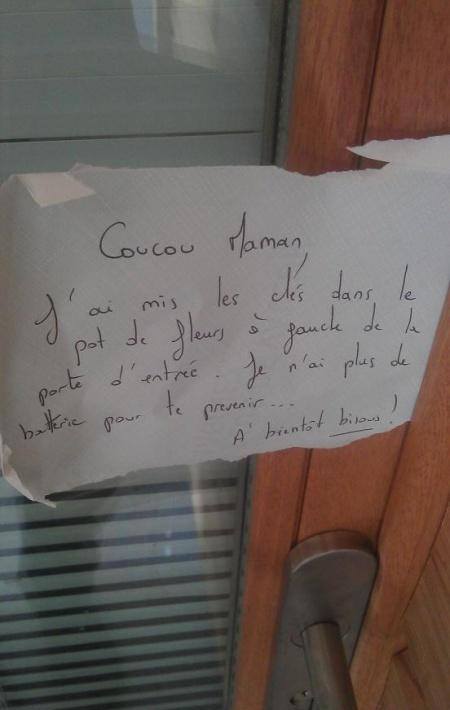 Coucou Maman,
J'ai mis les clés dans le
pot de fleurs à gauche de la
porte d'entrée. Je n'ai plus de
batterie pour te prevenir...
A' bientôt bisous !